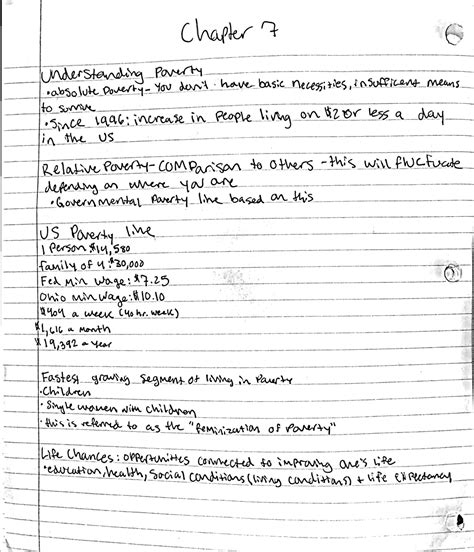 Chapter 7
Understanding Poverty
• absolute Poverty - you don't have basic necessities, insufficient means
to survive
• Since 1996: increase in people living on $2 or less a day
in the US
Relative Poverty - comparison to others - this will fluctuate
depending on where you are
• Governmental Poverty line based on this
US Poverty line
1 Person $14,580
family of 4: $30,000
Fed Min Wage: $7.25
Ohio Min Wage: $10.10
$404 a week (40 hr. week)
$1,616 a month
$19,392 a year
Fastest growing segment of living in Poverty
• Children
• Single women with children
• this is referred to as the "feminization of Poverty"
Life Chances: opportunities connected to improving one's life
• education, health, social conditions (living conditions) + life expectancy